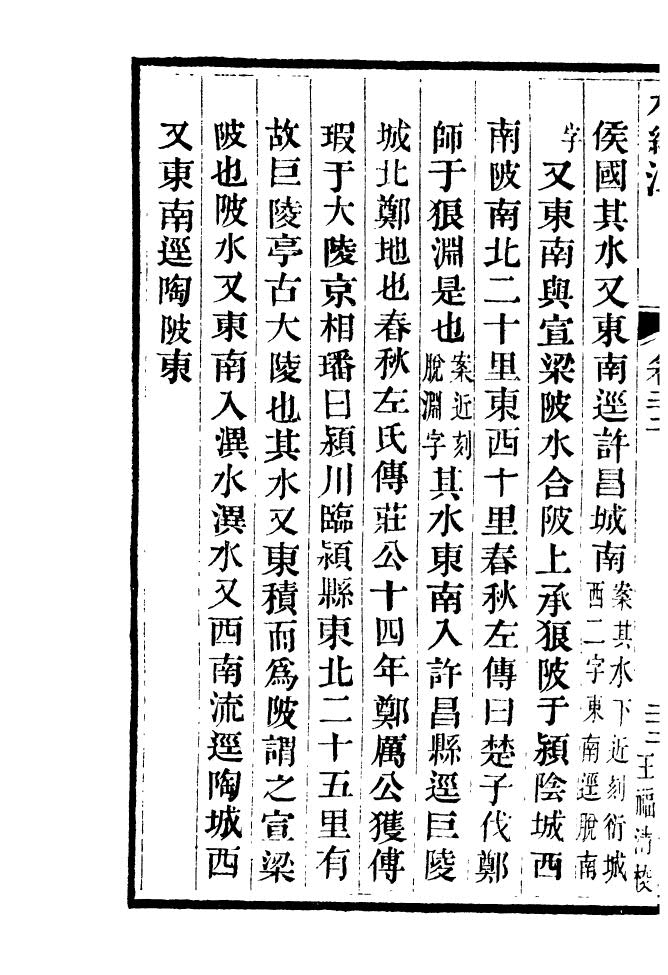 水經注 卷二十二 三三 王福清校
侯國其水又東南逕許昌城南案其水下近刻衍城西二字東南逕脫南
字又東南與宣梁陂水合陂上承狼陂于潁陰城西
南陂南北二十里東西十里春秋左傳曰楚子伐鄭
師于狼淵是也案近刻脫淵字其水東南入許昌縣逕巨陵
城北鄭地也春秋左氏傳莊公十四年鄭厲公獲傅
瑕于大陵京相璠曰潁川臨潁縣東北二十五里有
故巨陵亭古大陵也其水又東積而爲陂謂之宣梁
陂也陂水又東南入潩水潩水又西南流逕陶城西
又東南逕陶陂東